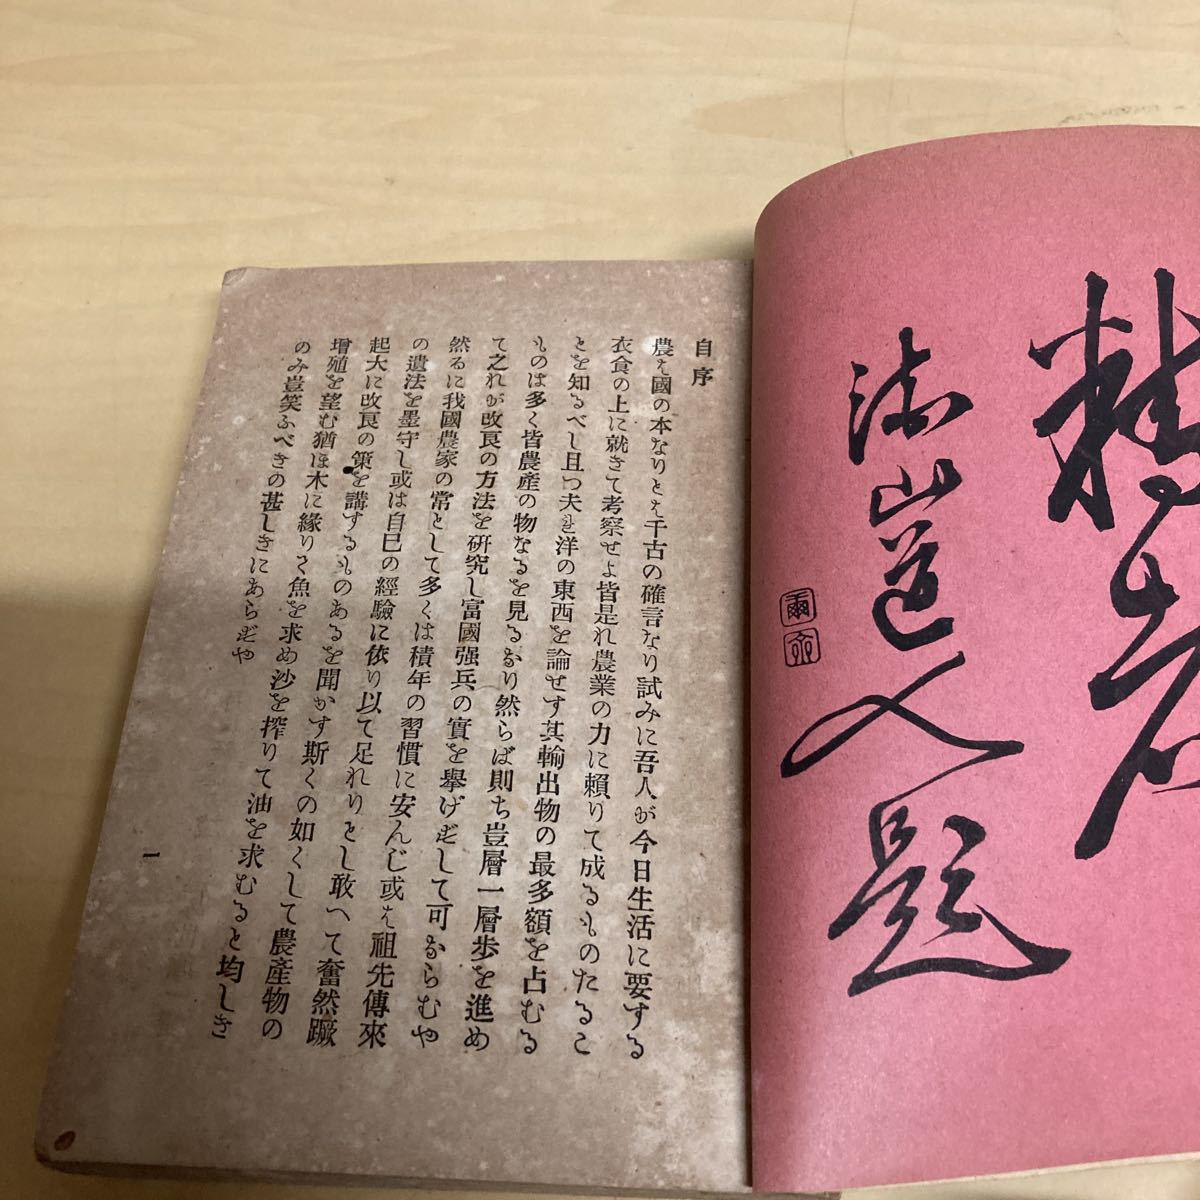 精
法山道人題
自序
農は國の本なりとは千古の確言なり試みに吾人が今日生活に要する
衣食の上に就きて考察せよ皆是れ農業の力に賴りて成るものたるこ
とを知るべし且つ夫れ洋の東西を論せす其輸出物の最多額を占むる
ものは多く皆農產の物なるを見るなり然らば則ち豈層一層歩を進め
て之れが改良の方法を硏究し富國强兵の實を擧げずして可ならむや
然るに我國農家の常として多くは積年の習慣に安んじ或は祖先傳來
の遺法を墨守し或は自己の經驗に依り以て足れりとし敢へて奮然蹶
起大に改良の策を講するものあるを聞かす斯くの如くして農產物の
增殖を望む猶ほ木に緣りて魚を求め沙を搾りて油を求むると均しき
のみ豈笑ふべきの甚しきにあらずや
一